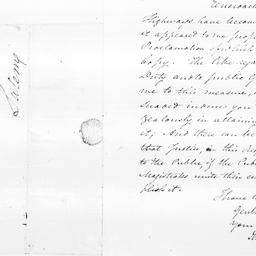 Highways have becom
it appeared to me prop
Proclamation
Copy. The like rega
Duty and to public G
me to this measure,
suaded induce you
zealously in attaini
it; And there can be
that Justice, in this res
to the Public, if the Pub
Magistrates unite their en
blish it.
I have
Gentl
Your